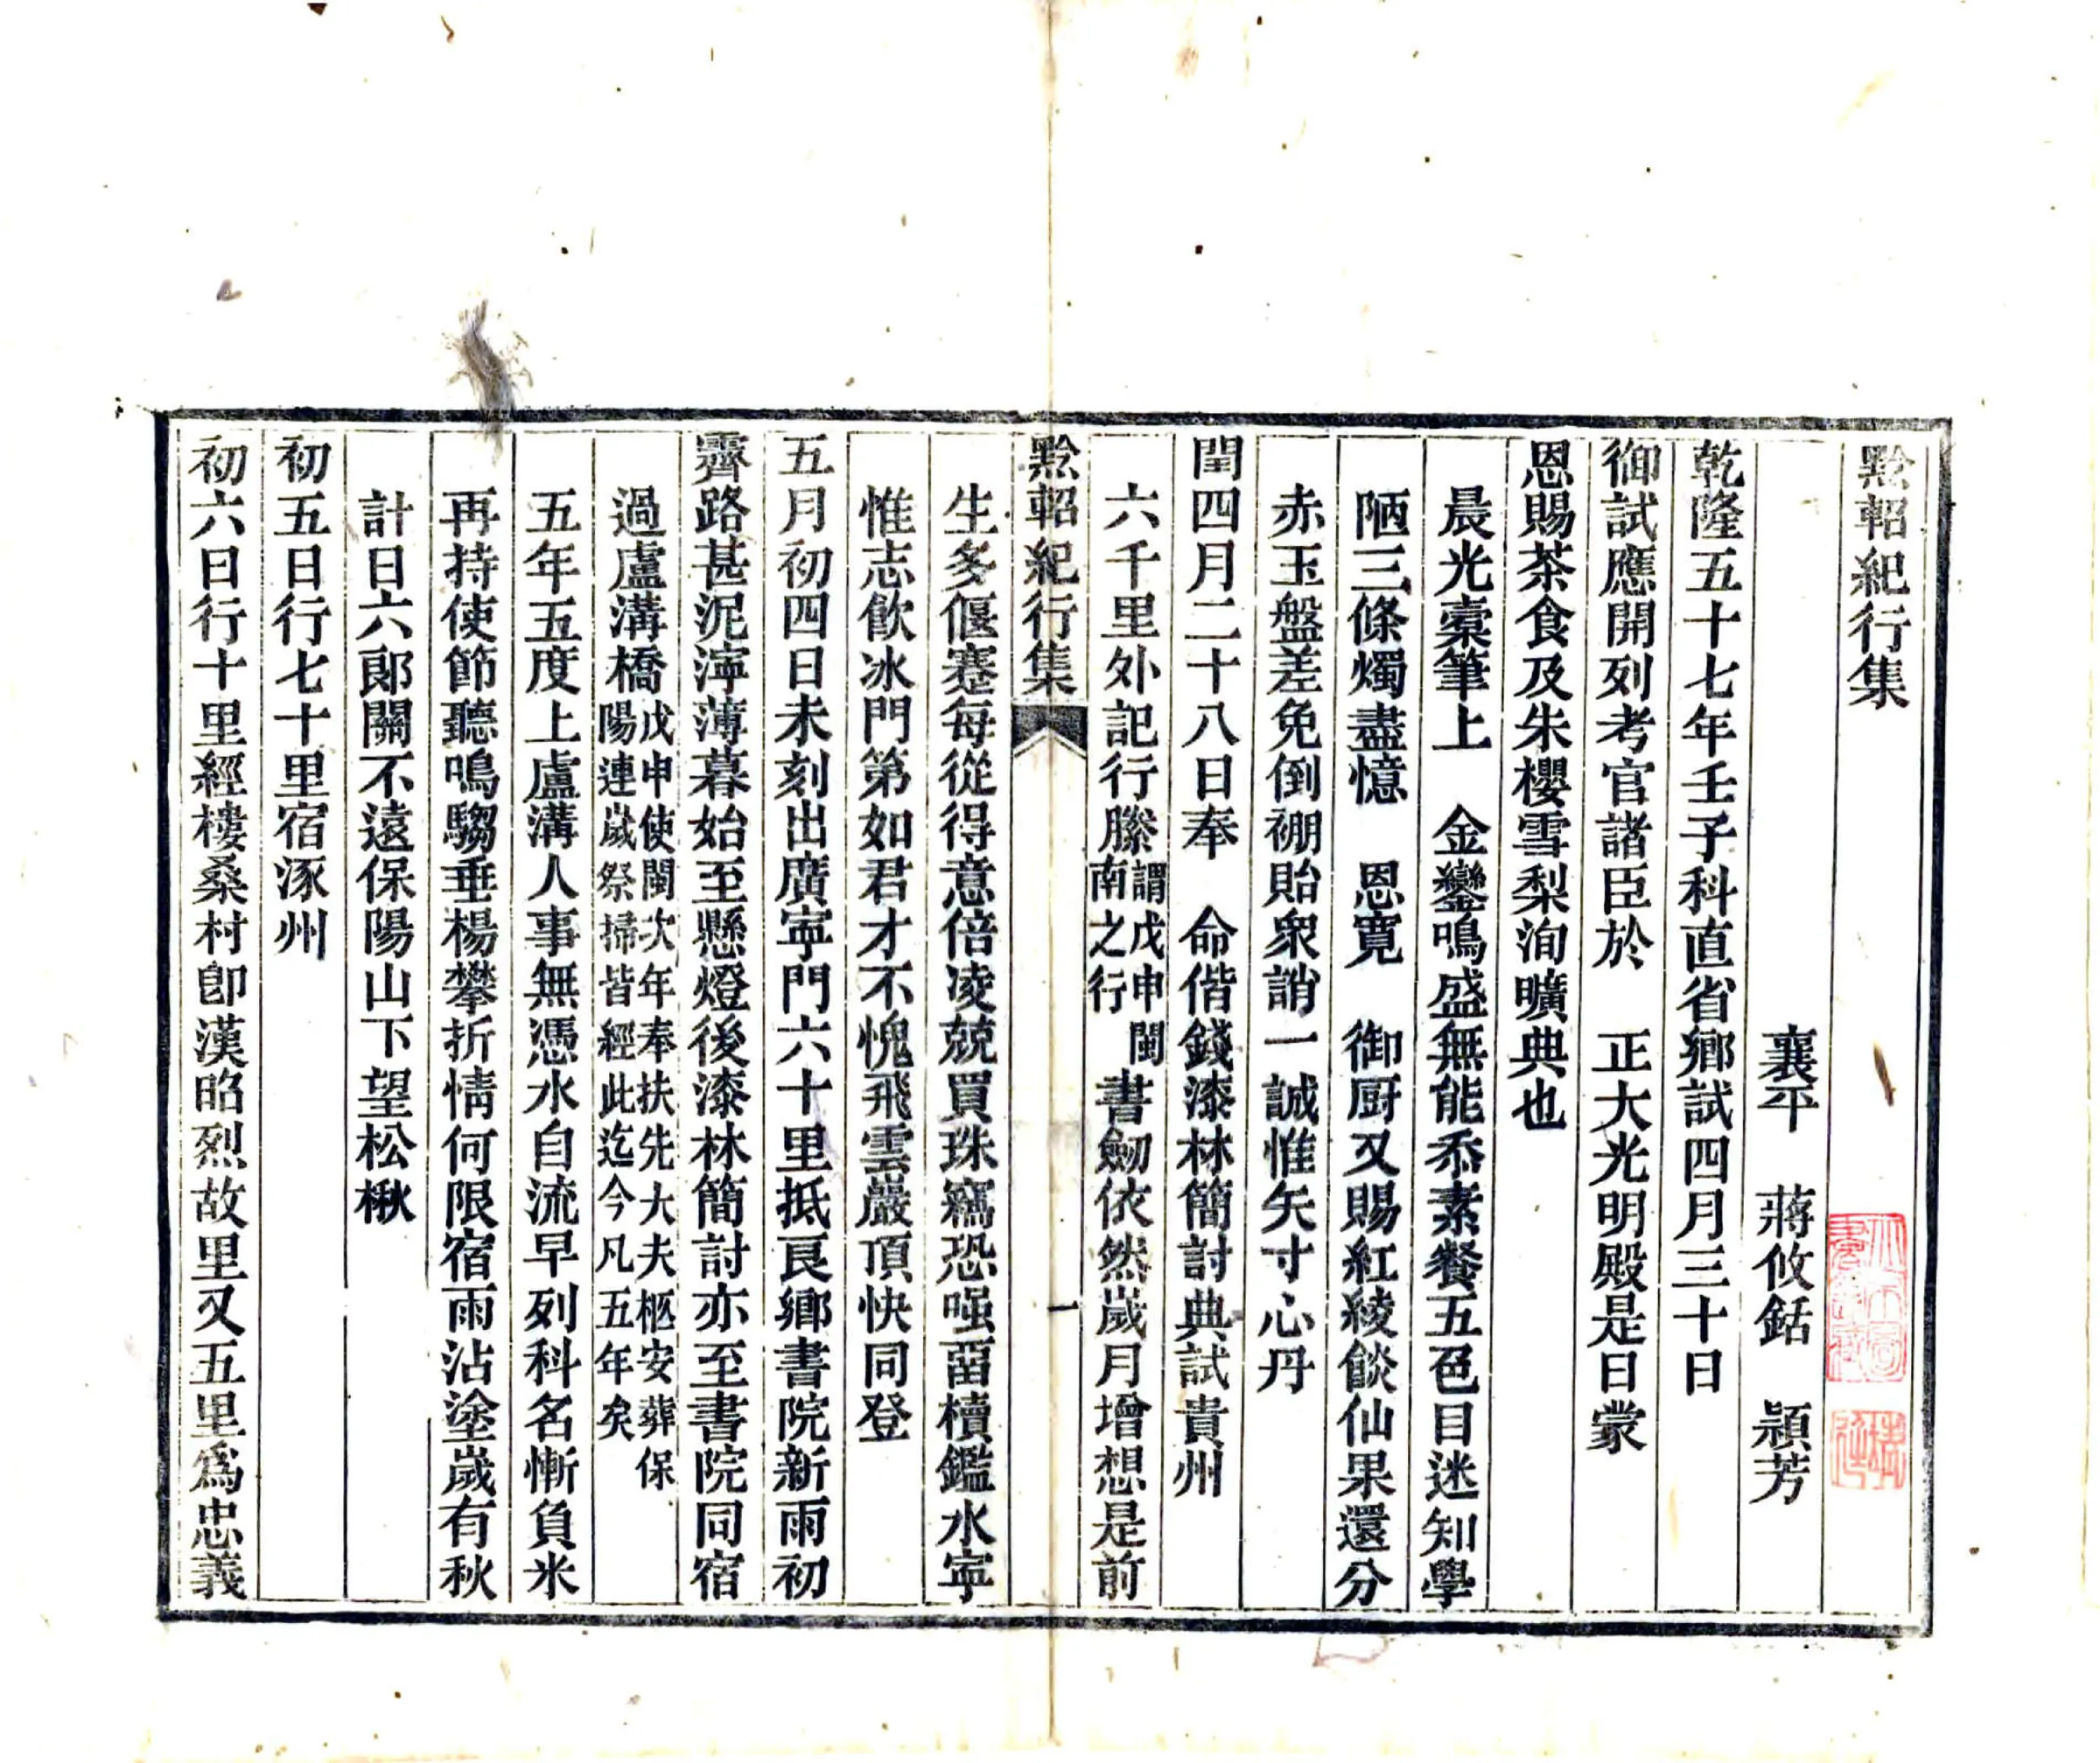 黔軺紀行集
襄平　蔣攸銛　潁芳
乾隆五十七年壬子科直省鄉試四月三十日
御試應開列考官諸臣於　正大光明殿是日蒙
恩賜茶食及朱櫻雪梨洵曠典也
晨光槖筆上　金鑾鳴盛無能忝素餐五色目迷知學
陋三條燭盡憶　恩寬　御厨又賜紅綾餤仙果還分
赤玉盤差免倒綳貽衆誚一誠惟矢寸心丹
閏四月二十八日奉　命偕錢漆林簡討典試貴州
六千里外記行縢
謂戊申閩
南之行
書劒依然歲月增想是前
黔軺紀行集
一
生多偃蹇每從得意倍凌兢買珠竊恐嗤畱櫝鑑水寜
惟志飮冰門第如君才不愧飛雲巖頂快同登
五月初四日未刻出廣寜門六十里抵良鄉書院新雨初
霽路甚泥濘薄暮始至懸燈後漆林簡討亦至書院同宿
過盧溝橋
戊申使閩次年奉扶先大夫柩安葬保
陽連歲祭掃皆經此迄今凡五年矣
五年五度上盧溝人事無憑水自流早列科名慚負米
再持使節聽鳴騶垂楊攀折情何限宿雨沾塗歲有秋
計日六郞關不遠保陽山下望松楸
初五日行七十里宿涿州
初六日行十里經樓桑村卽漢昭烈故里又五里爲忠義